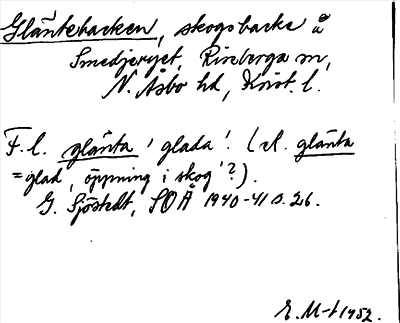 Gläntebacken, skogsbacke å
Smedjeryet, Riseberga sn,
N. Åsbo hd, Krist. l.
F. l. glänta 'glada'. (el. glänta
= glad, öppning i skog'?).
G. Sjöstedt, SOÅ 1940-41 s. 26.
E. M-t 1952.